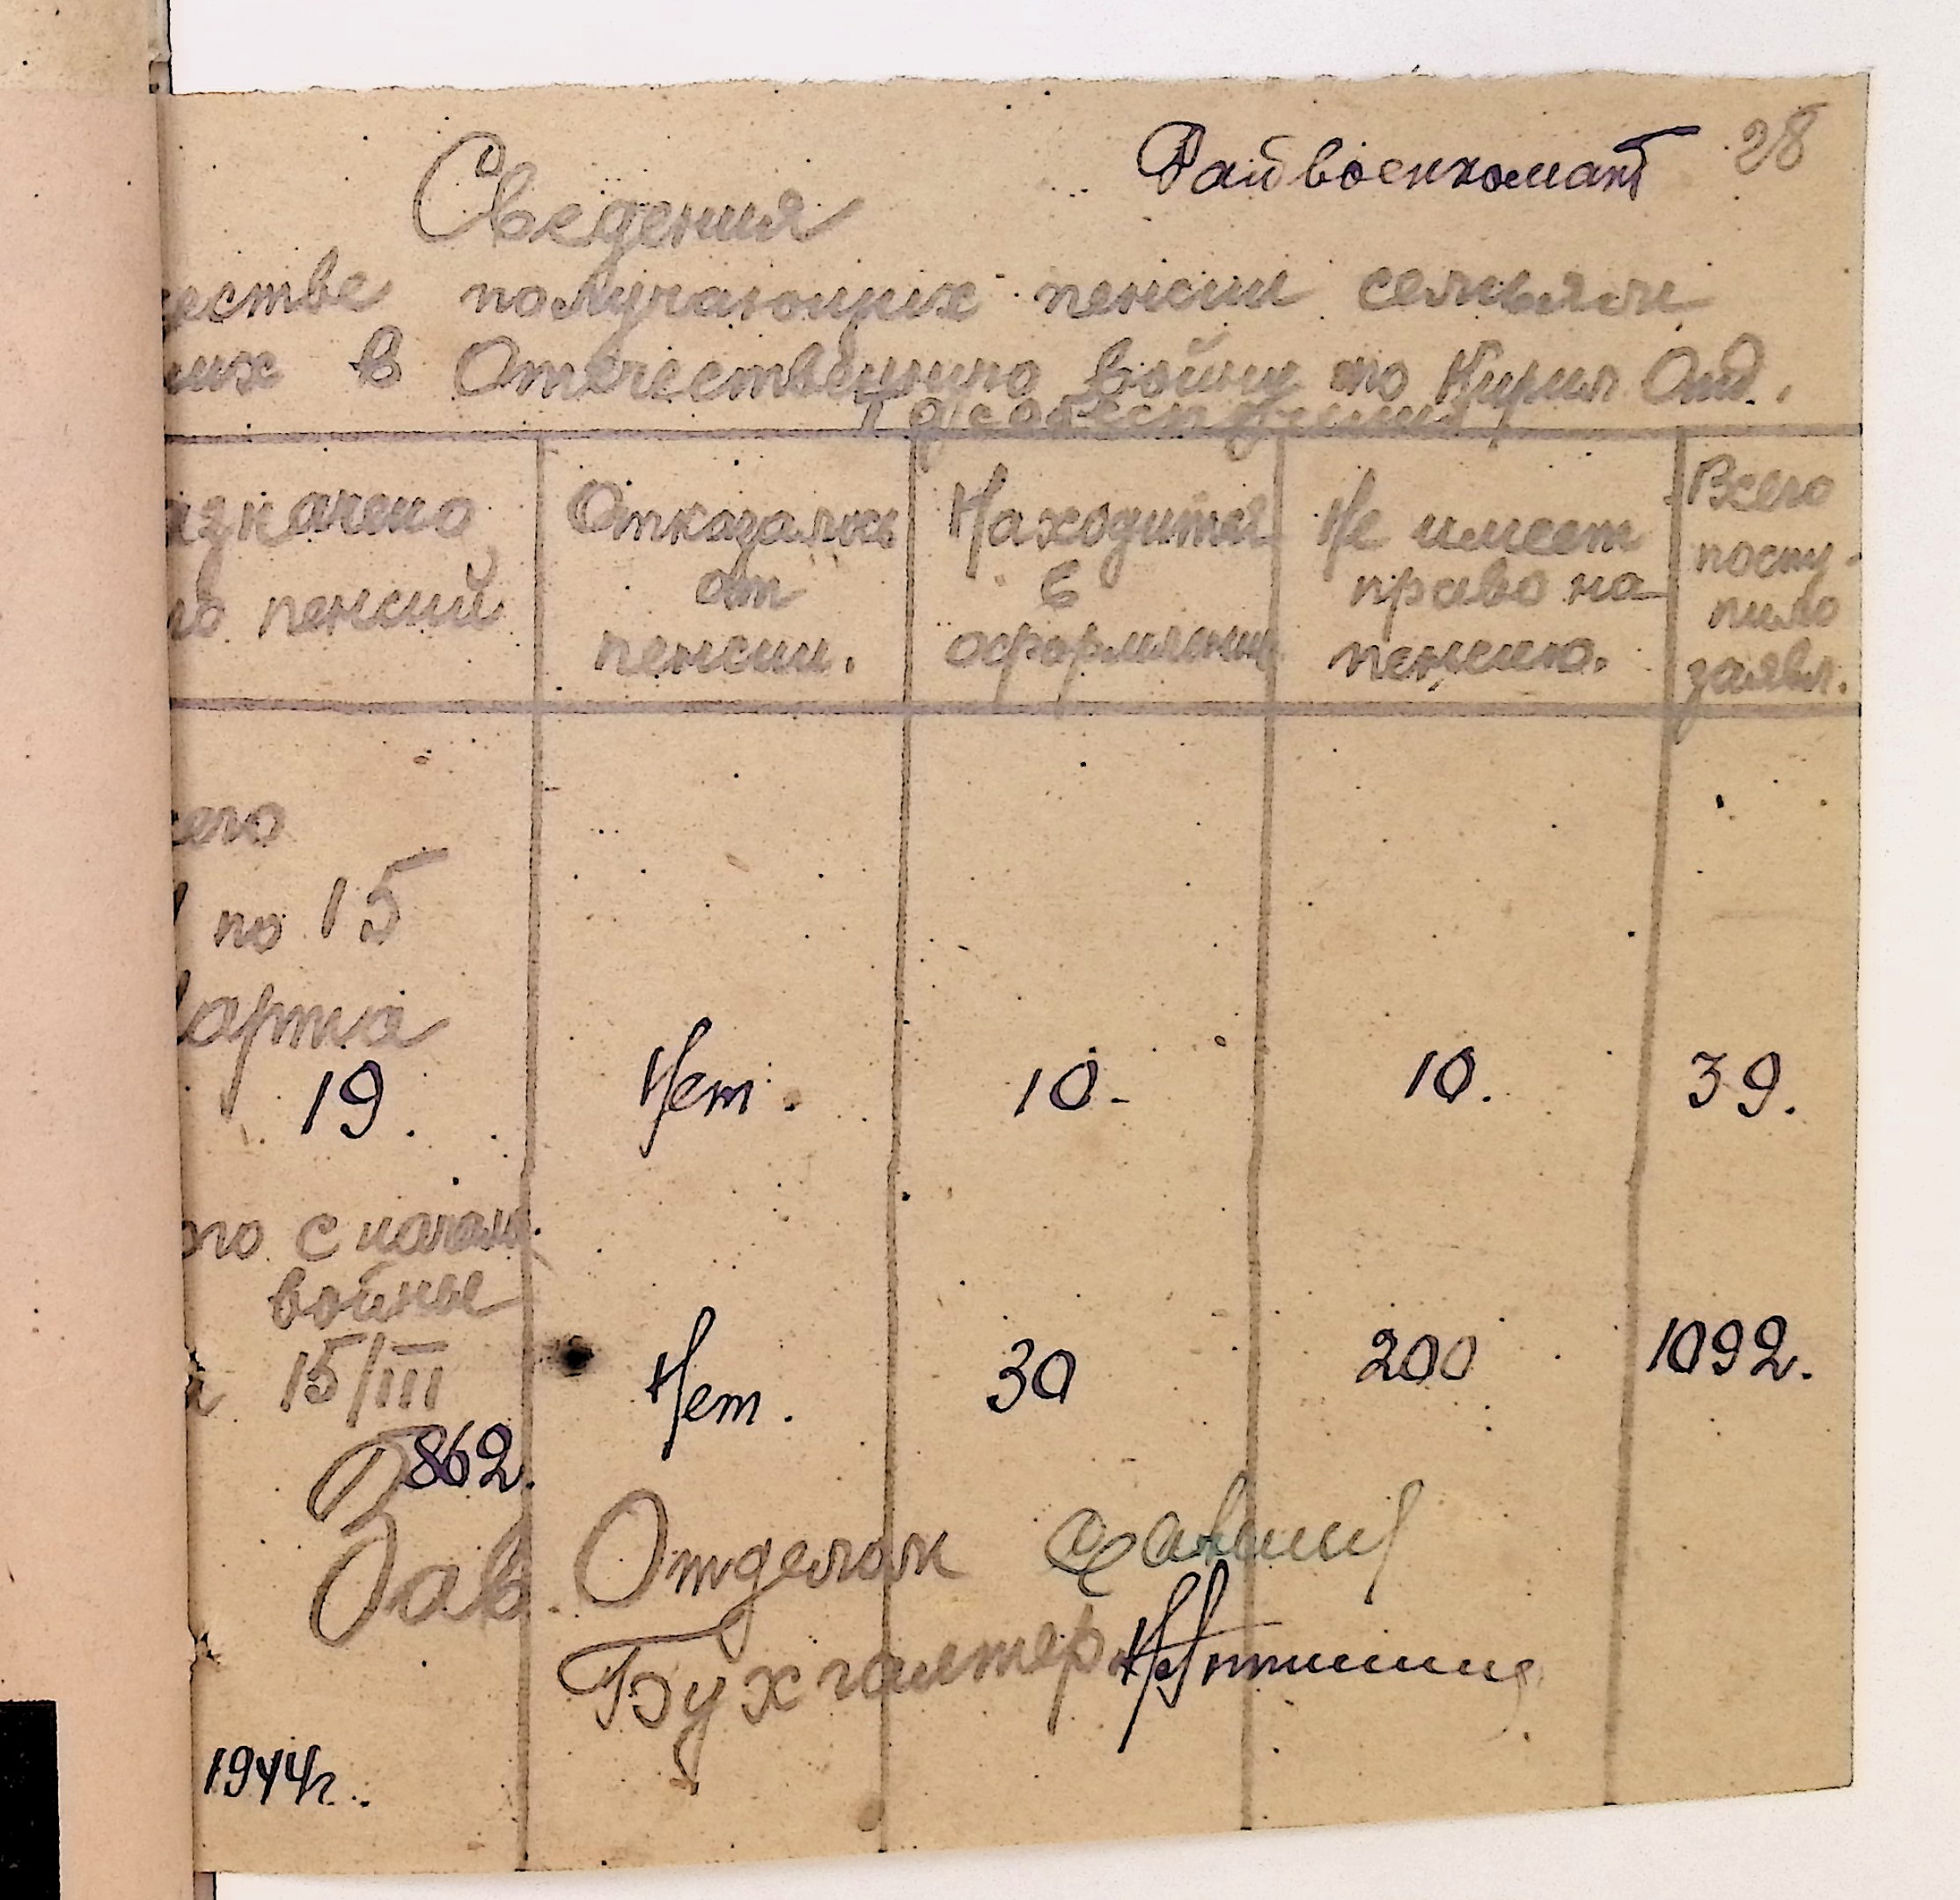 Райвоенкомат 28
Сведения
естве получающих пенсии семьям
их в Отечественную войну по Кирил Отд.
Гособеспечения
азначено
но пенсий
Отказалось
от
пенсии.
Находится
в
оформлении
Не имеет
право на
пенсию.
Всего
посту-
пило
заявл.
сего
по 15
марта
19. Нет. 10- 10. 39.
ого с начала
войны
15/III
862. Нет. 30 200 1092.
Зав. Отделом
Бухгалтер
1944г.